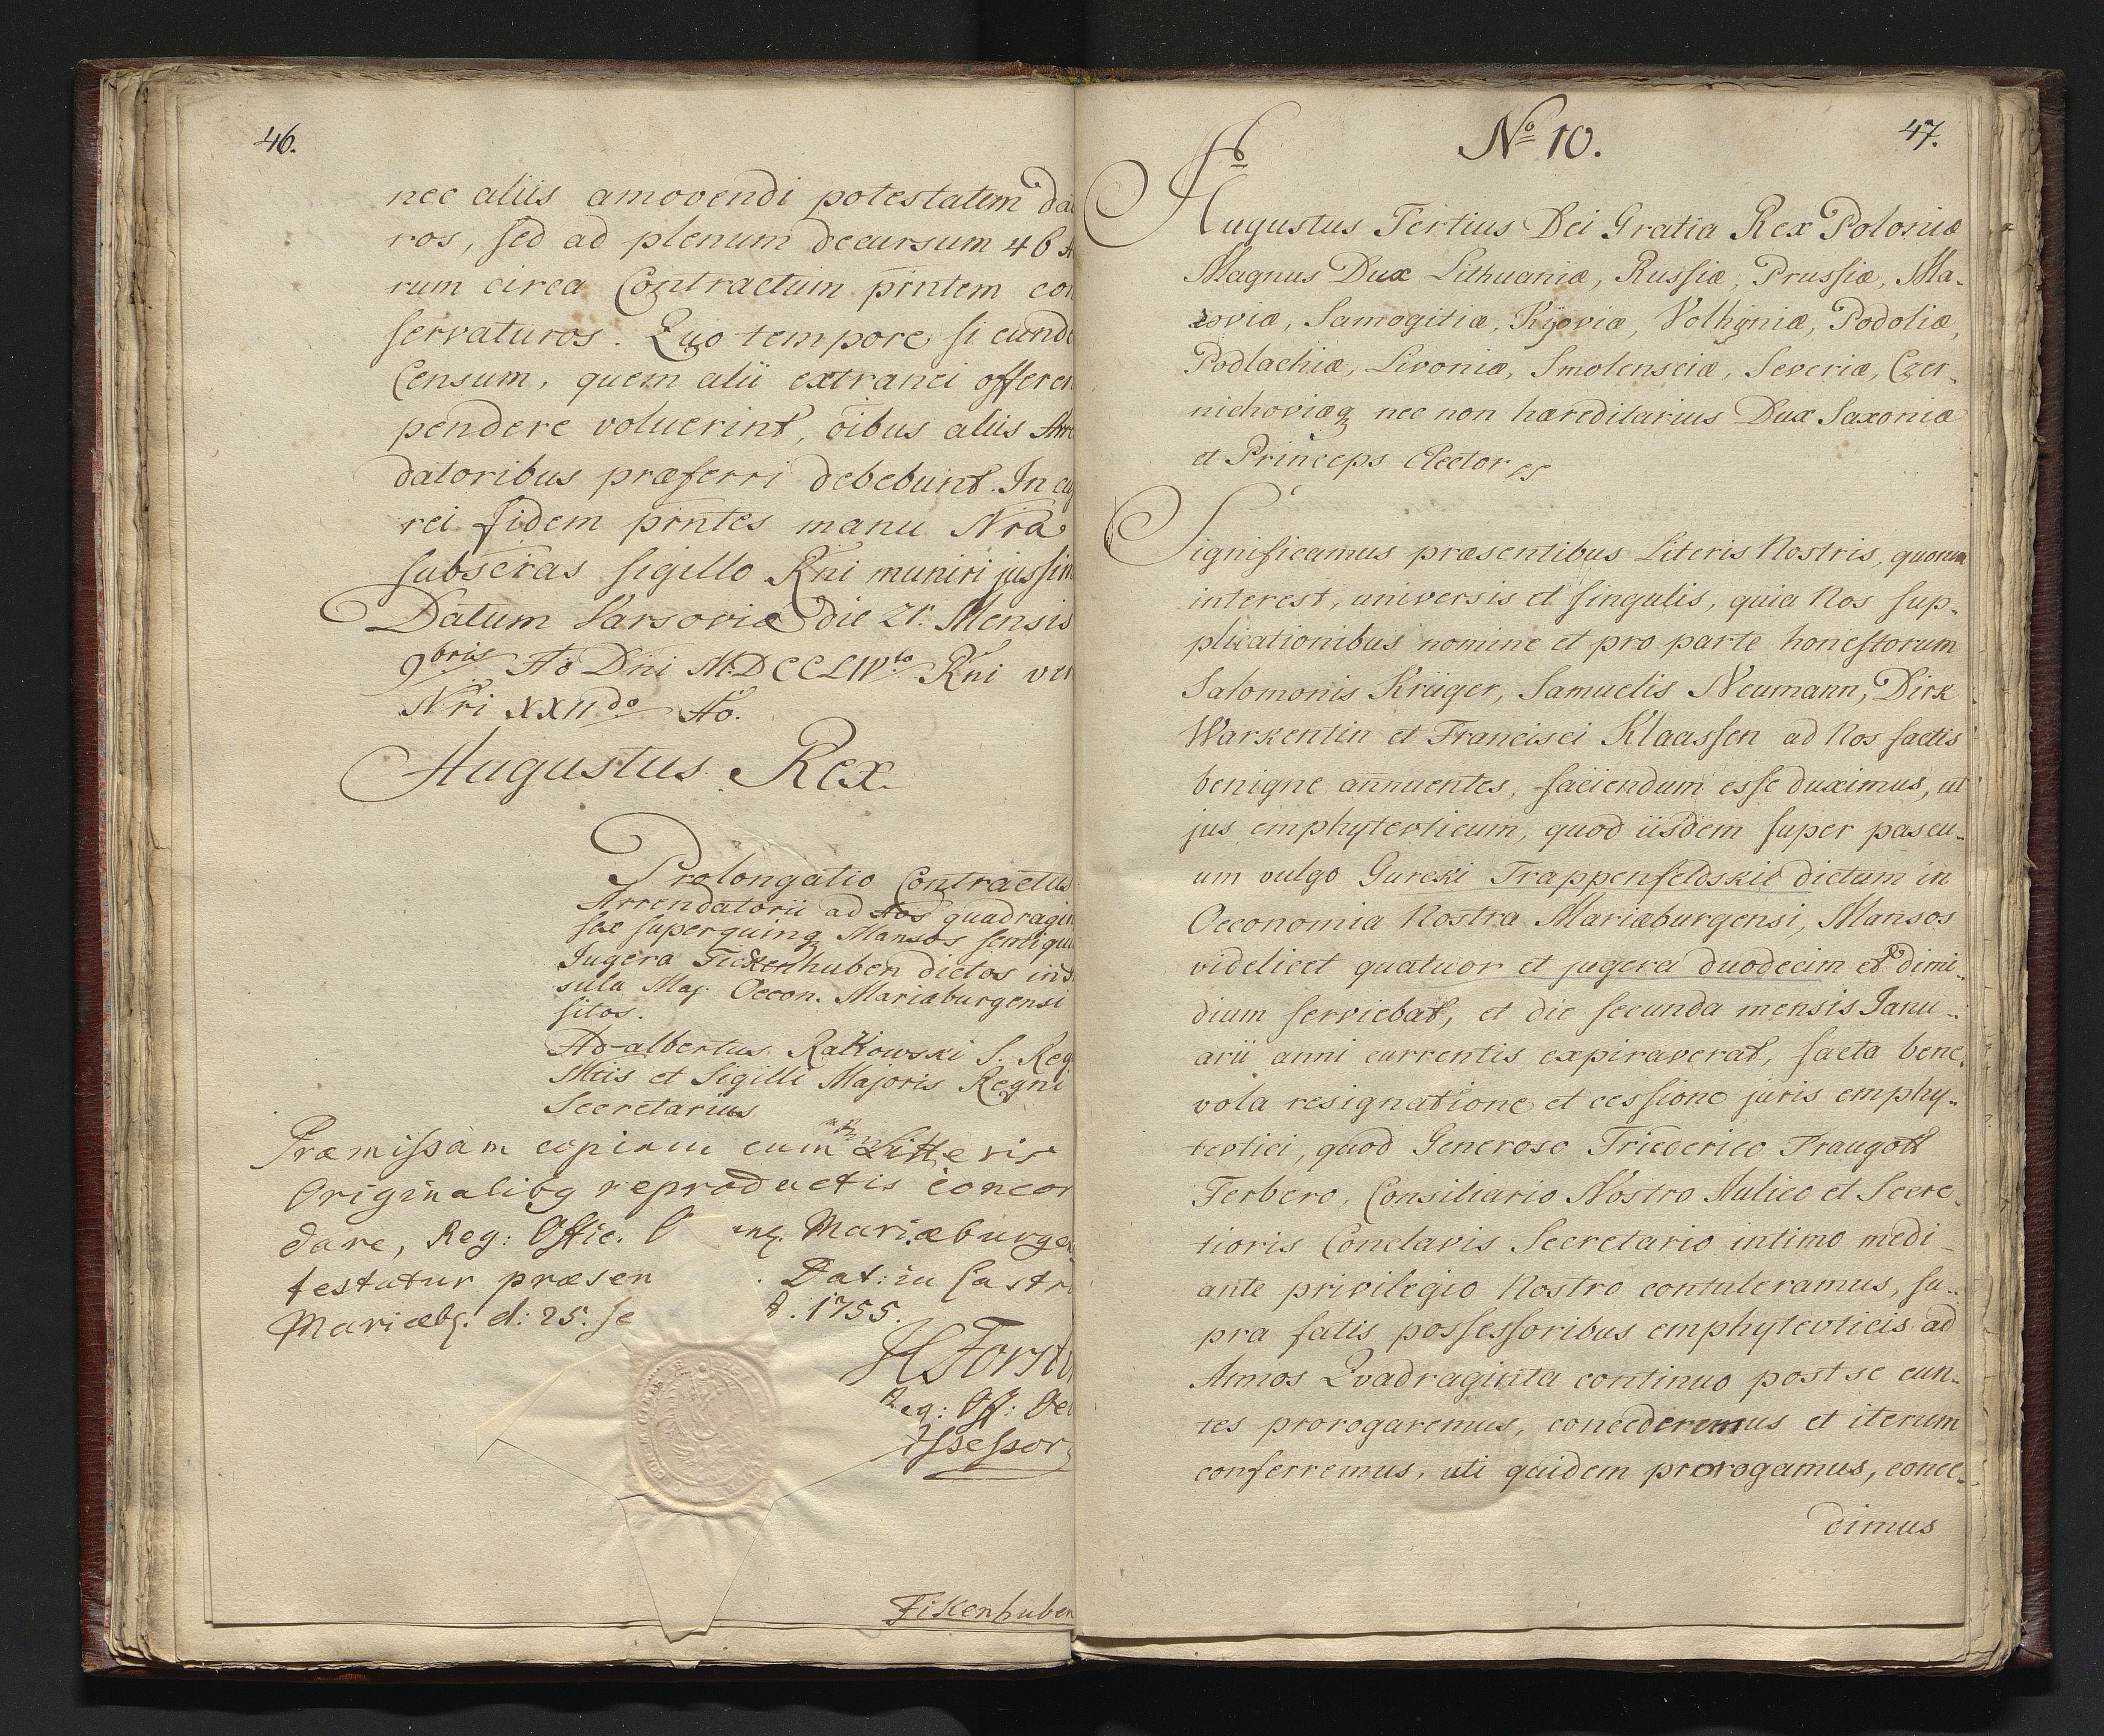 46.
nec aliis amovendi potestatem da
ros, sed ad plenum decursum 46 A
rum circa Contractum pñtem con
servaturos. Quo tempore si eund
Censum, quem alii extranei offeren
pendere voluerint, oîbus aliis Arre
datoribus præferri debebunt. In cuj
rei fidem pñtes manu Nrã
subscras sigillo Rni muniri jussim
Datum Varsoviæ die 21. Mensis
9bris Aõ Dñi MDCCLIVto Rñi ver
Nri XXIIdo Aõ.
Augustus Rex.
Prolongatio Contractus
Arrendatorii ad Aõs quadragin
sex super quinq Mansos semi qua
Jugera Fickenhuben dictos in
sula Maj. Oecon. Mariæburgensi
sitos.
Adalbertus Rakowski S. Reg
Mtis et Sigilli Majoris Regni
Secretarius
Præmissam copiam cum Litteris
Originalibq reproductis concor
dare, Reg: Offic. O Mariæburgen
testatur præsen . Dat: in Castr
Mariæbg. d: 25. Se 1755.
H Forst
Reg: Off: Oec
Assessor
Fikenhuben
No 10.
47.
Augustus Tertius Dei Gratia Rex Poloniæ
Magnus Dux Lithuaniæ, Russiæ, Prussiæ, Ma-
zoviæ, Samogitiæ, Kijoviæ, Volhÿniæ, Podoliæ,
Podlachiæ, Livoniæ, Smolensciæ, Severiæ, Czer-
nichoviæq nec non hæreditarius Dux Saxoniæ
et Princeps Elector
Significamus præsentibus Literis Nostris, quorum
interest, universis et singulis, quia Nos sup-
plicationibus nomine et pro parte honestorum
Salomonis Krüger, Samuelis Neumann, Dirk
Warkentin et Francisci Klaassen ad Nos factis
benigne annuentes, faciendum esse duximus, ut
jus emphytevticum, quod iisdem super pascu-
um vulgo Gurcki Trappenfeldskie dictum in
Oeconomia Nostra Mariæburgensi, Mansos
videlicet quatuor et jugera duodecim et dimi-
dium serviebat, et die secunda mensis Janu-
arii anni currentis expiraverat, facta bene-
vola resignatione et cessione juris emphy-
tevtici, quod Generoso Friederico Fraugott
Ferbero, Consiliario Nostro Aulico et Secre-
tioris Conclavis Secretario intimo medi-
ante privilegio Nostro contuleramus, su-
pra fatis possessoribus emphytevticis ad
Annos Qvadraginta continuo post se eun-
tes prorogaremus, concederemus et iterum
conferremus, uti quidem prorogamus, conce-
dimus